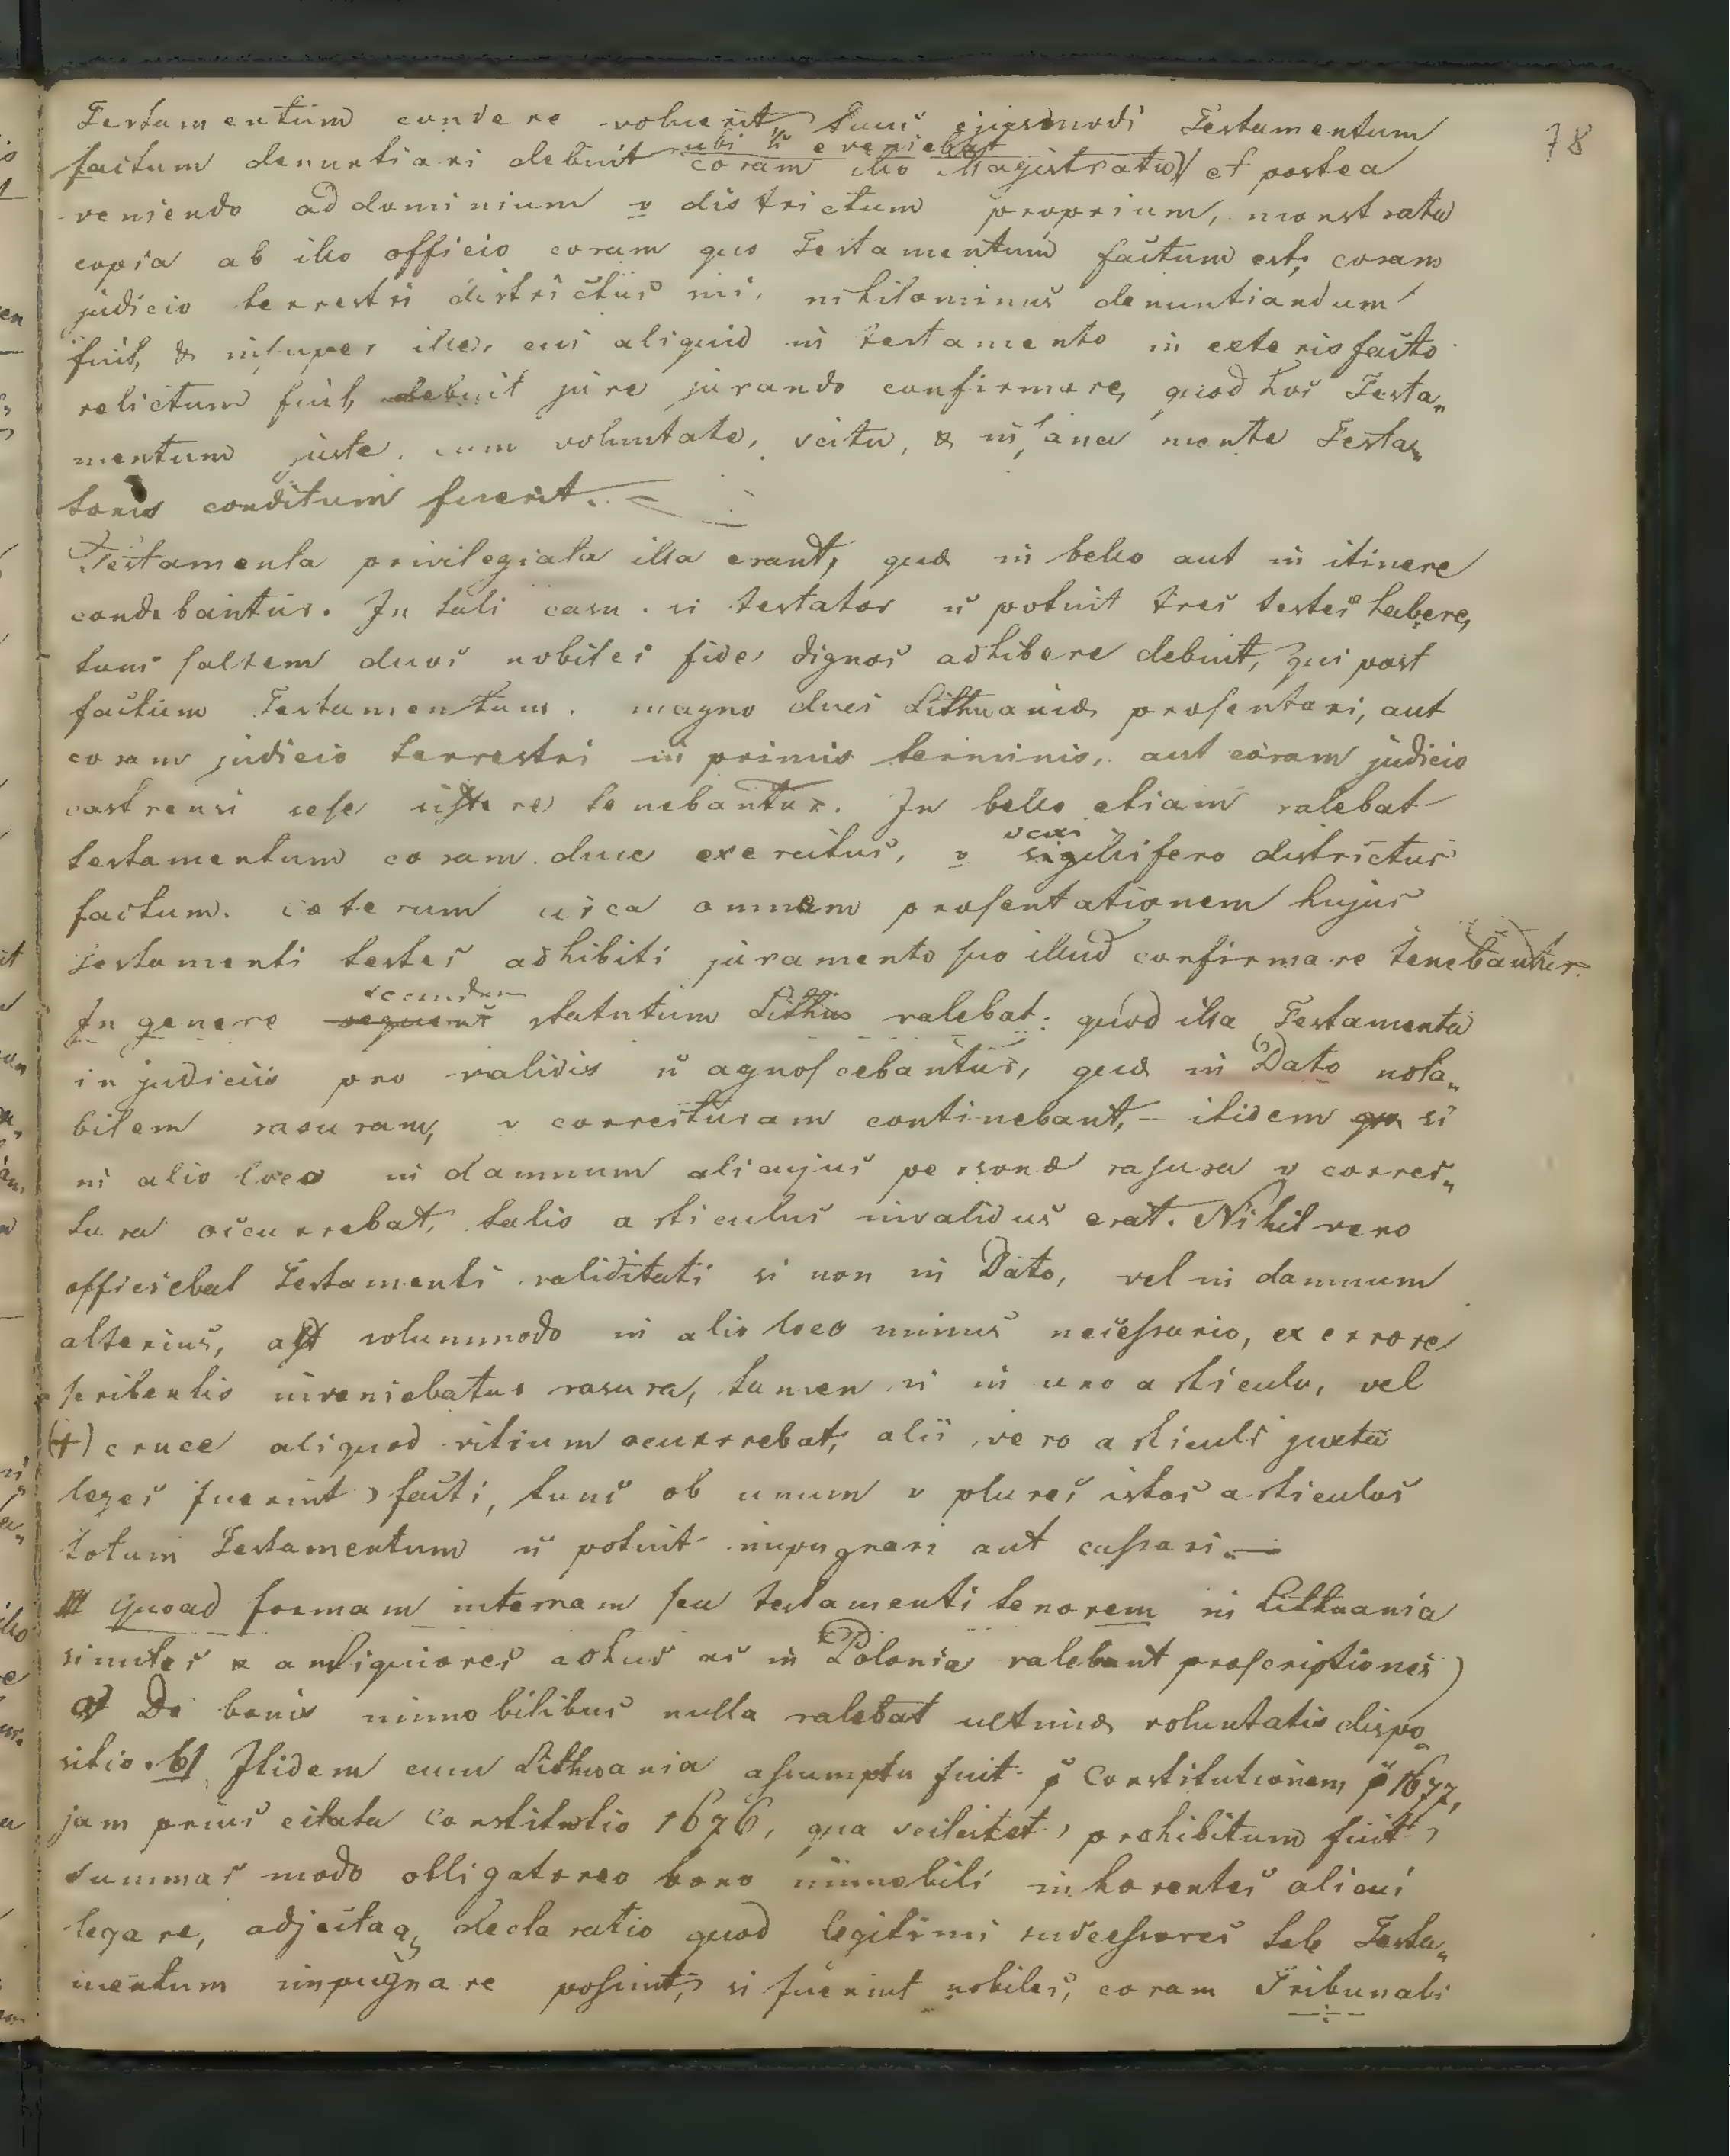 78
Testamentum condere voluerit, tunc ejusmodi Testamentum
ubi hoc eveniebat
factum denuntiari debuit coram illo Magistratu) et postea
veniendo ad dominium v districtum proprium, monstrata
copia ab illo officio coram quo Testamentum factum est, coram
judicio terrestri districtus sui, nihilominus denuntiandum
fuit, & insuper ille, cui aliquid in testamento in exteris facto
relictum fuit, debuit jure jurando confirmare, quod hoc Testa„
mentum juste, cum voluntate, scitu, & in sana mente Testa„
toris conditum fuerit. —
Testamenta privilegiata illa erant, quæ in bello aut in itinere
condebantur. In tali casu si testator n̄ potuit tres testes habere,
tunc saltem duos nobiles fide dignos adhibere debuit, qui post
factum Testamentum, magno duci Lithuaniæ præsentari, aut
coram judicio terrestri in primis terminis, aut coram judicio
castrensi sese sistere tenebantur. In bello etiam valebat
testamentum coram duce exercitus, v sigillifero districtus
vexi
factum. cæterum circa omnem præsentationem hujus
testamenti testes adhibiti juramento suo illud confirmare tenebantur.
secundum
In genere statutum Lithuæ valebat: quod illa Testamenta
in judiciis pro validis n̄ agnoscebantur, quæ in Dato nota„
bilem rasuram, v correcturam continebant, — itidem si
in alio loco in damnum alicujus personæ rasura v correc„
tura occurrebat, talis articulus invalidus erat. Nihil vero
officiebat Testamenti validitati si non in Dato, vel in damnum
alterius, ast solummodo in alio loco minus necessario, ex errore
scribentis inveniebatur rasura, tamen si in uno articulo, vel
(+) cruce aliquod vitium occurrebat, alii vero articuli juxta
leges fuerint facti, tunc ob unum v plures istos articulos
totum Testamentum n̄ potuit impugnari aut cassari. —
III Quoad formam internam seu testamenti tenorem in Lithuania
similes & antiquiores adhuc ac in Polonia valebant præscriptiones
a) De bonis immobilibus nulla valebat ultimæ voluntatis dispo„
sitio. b) Itidem cum Lithuania assumpta fuit p Constitutionem p 1677,
jam prius citata Constitutio 1676, qua scilicet prohibitum fuit
summas modo obligatoreo bono immobili inhærentes alicui
legare, adjectaq, declaratio quod legitimi successores tale Testa„
mentum impugnare possint, si fuerint nobiles, coram Tribunali